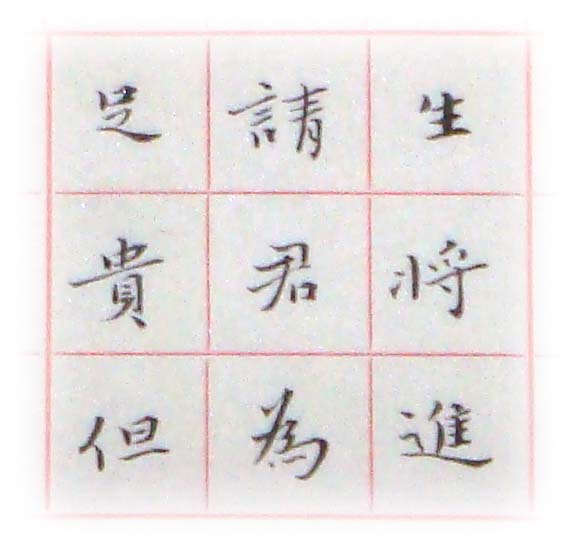 生将進
請君為
足貴但